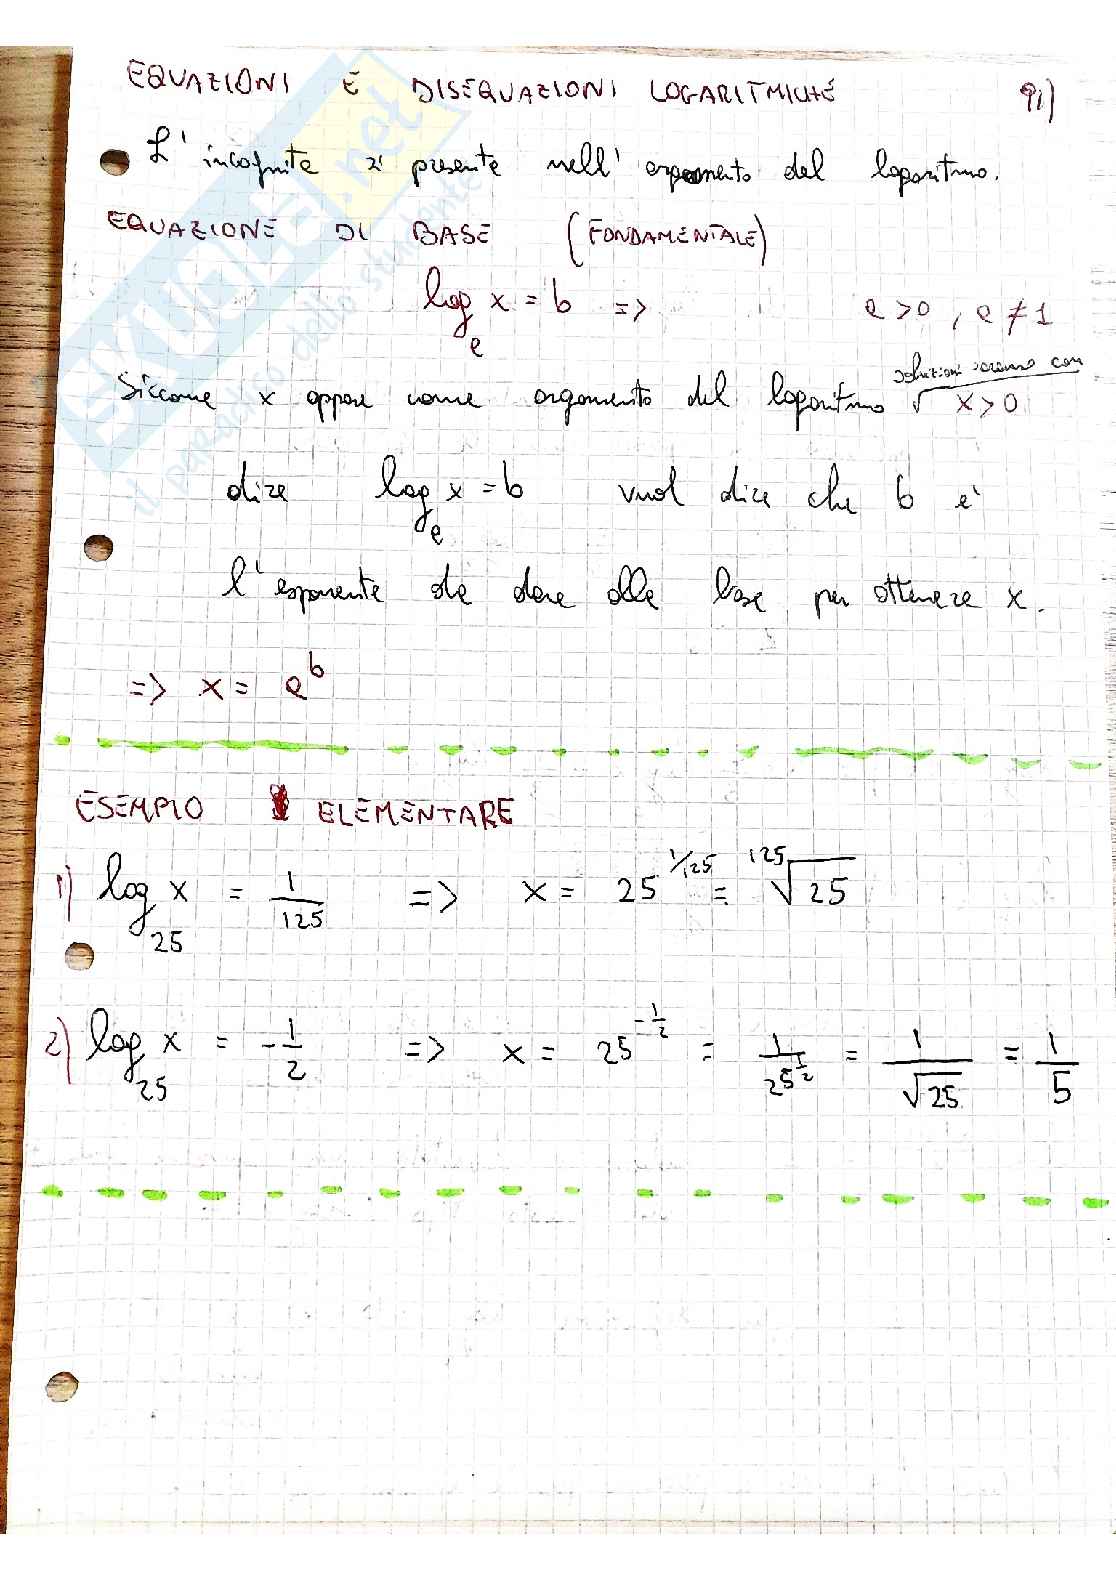 EQUAZIONI E DISEQUAZIONI LOGARITMICHE 91)
L'incognita è presente nell'argomento del logaritmo.
EQUAZIONE DI BASE (FONDAMENTALE)
log_a x = b => a>0, a≠1
soluzioni saranno con
Siccome x appare come argomento del logaritmo √ x>0
dire log_a x = b vuol dire che b è
l'esponente da dare alla base per ottenere x.
=> x = a^b
ESEMPIO ELEMENTARE
1) log_25 x = 1/125 => x = 25^(1/125) = ¹²⁵√25
2) log_25 x = -1/2 => x = 25^(-1/2) = 1/25^(1/2) = 1/√25 = 1/5
SKUOLA.net
il paradiso dello studente